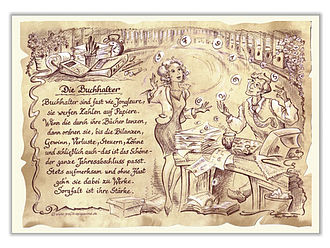 Die Buchhalter
Buchhalter sind fast wie Jongleure,
sie werfen Zahlen auf Papiere.
Wenn die durch ihre Bücher tanzen,
dann ordnen sie, bis die Bilanzen,
Gewinn, Verluste, Steuern, Löhne
und schließlich auch - das ist das Schöne -
der ganze Jahresabschluss passt.
Stets aufmerksam und ohne Hast
geh'n sie dabei zu Werke.
Sorgfalt ist ihre Stärke.